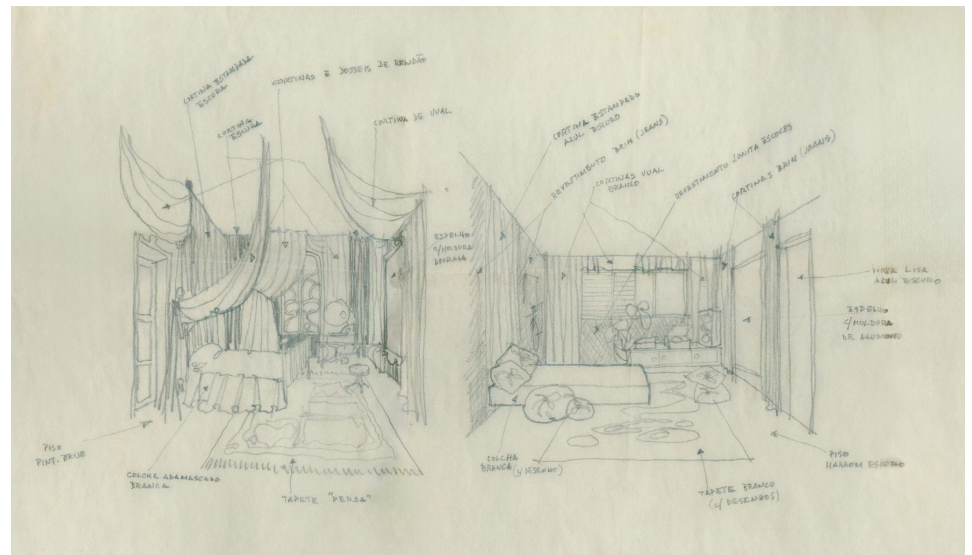 CORTINA ESTAMPADA
ESCURA
CORTINAS E DOSSEIS DE RENDÃO
CORTINA
ESCURA
CORTINA DE VUAL
ESPELHO
C/MOLDURA
DOURADA
PISO
COLCHA ADAMASCADO
BRANCA
TAPETE "PERSA"
CORTINA ESTAMPADO
AZUL ESCURO
REVESTIMENTO BRIM (JEANS)
CORTINAS VUAL
BRANCO
REVESTIMENTO LONITA ESCOCES
CORTINAS BRIM (JEANS)
LISA
AZUL ESCURO
ESPELHO
C/MOLDURA
DE ALUMINIO
COLCHA
BRANCA (C/DESENHO)
TAPETE BRANCO
(C/ DESENHOS)
PISO
MARROM ESCURO